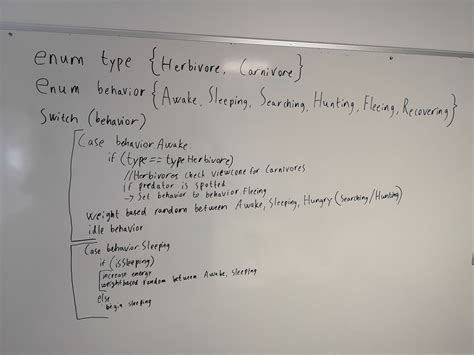 enum type {Herbivore, Carnivore}
enum behavior {Awake, Sleeping, Searching, Hunting, Fleeing, Recovering}
Switch (behavior)
Case behavior.Awake:
if (type == type.Herbivore)
//Herbivores check viewcone for Carnivores
if predator is spotted
→ Set behavior to behavior.Fleeing
weight based random between Awake, Sleeping, Hungry (Searching/Hunting)
idle behavior
Case behavior.Sleeping
if (isSleeping)
increase energy
weight based random between Awake, sleeping
else
begin sleeping